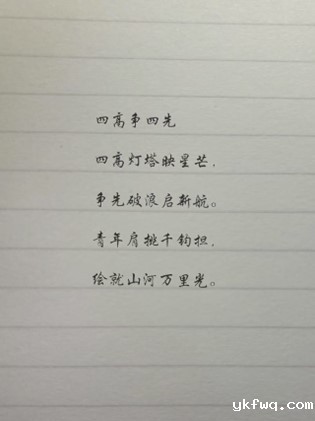 四高争四先
四高灯塔映星芒，
争先破浪启新航。
青年肩挑千钧担，
绘就山河万里光。
ykfwq.com